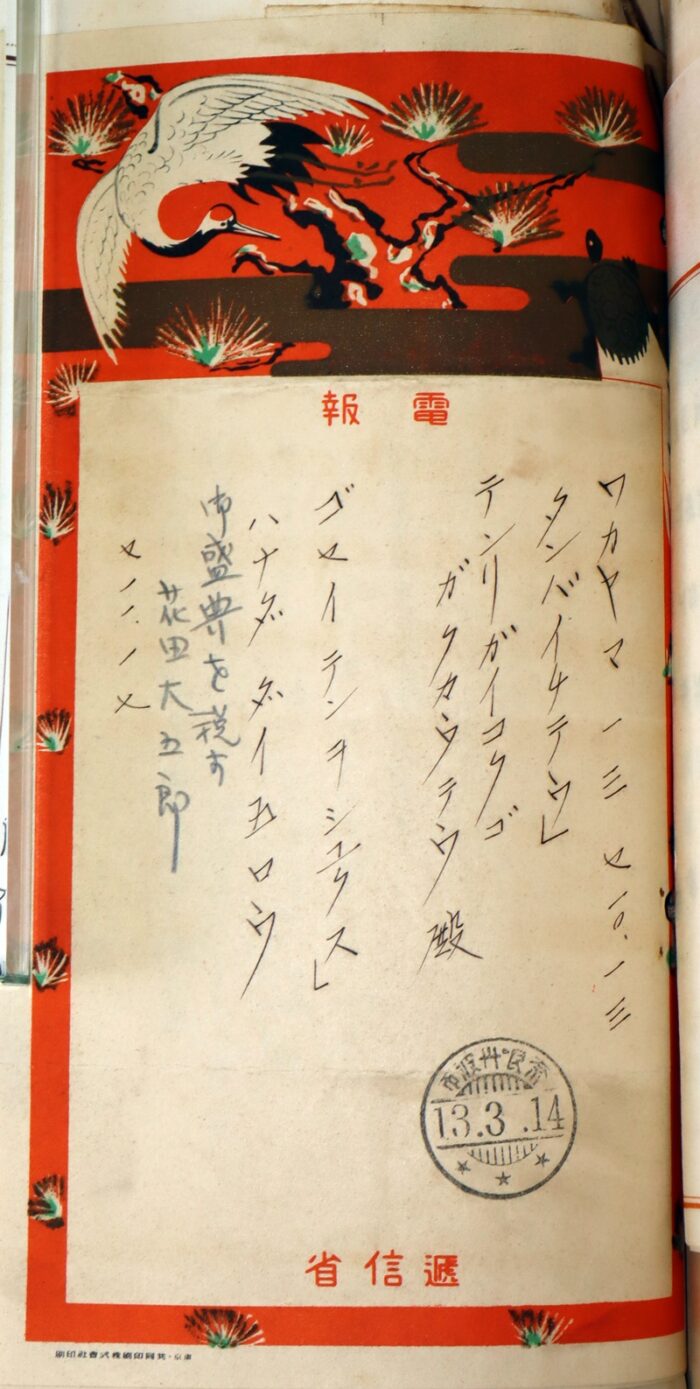 電報
ワカヤマ 一三 セ 一〇、一三
タンバイチテウ」
テンリガイコクゴ
ガクカウテウ殿
ゴセイテンヲシュクス」
ハナダ ダイ五ロウ
御盛典を祝す
花田大五郎
セ一一、一七
奈良・丹波市
13.3.14
遞信省
東京・共同印刷株式會社印刷